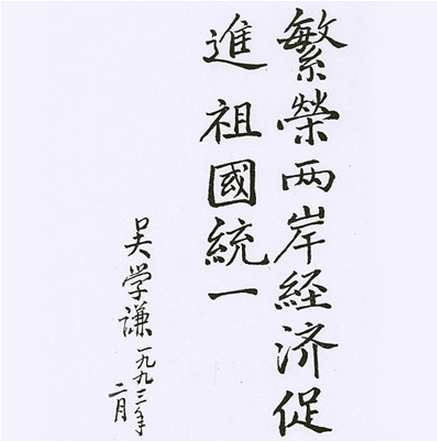 繁榮两岸经济促
進祖國統一
吴学谦一九九三年
二月